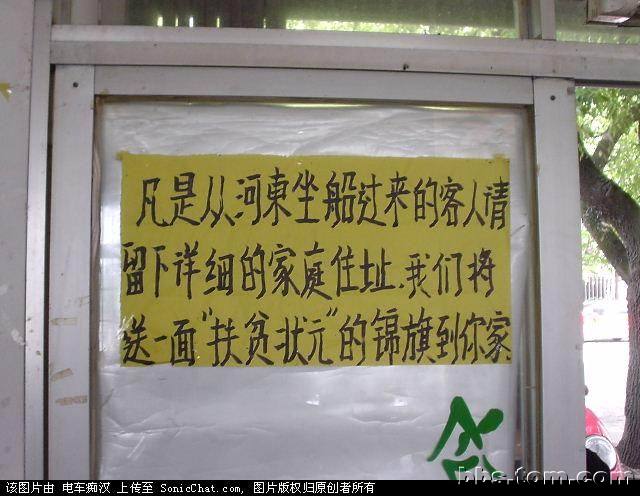 凡是从河東坐船过来的客人请
留下详细的家庭住址.我们将
送一面"扶贫状元"的锦旗到你家
bbs.tom.com
该图片由 电车痴汉 上传至 SonicChat.com, 图片版权归原创者所有